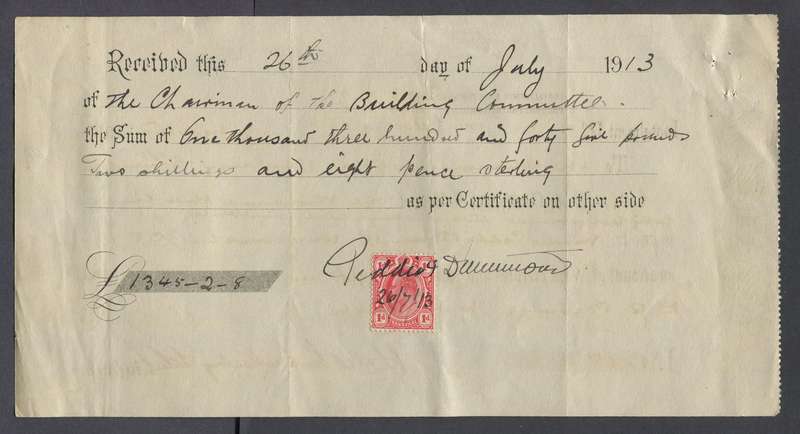 Received this 26th day of July 1913
of the Chairman of the Building Committee.
the Sum of One thousand three hundred and forty five pounds
Two shillings and eight pence sterling
as per Certificate on other side
£1345-2-8
26/7/13
1d 1d